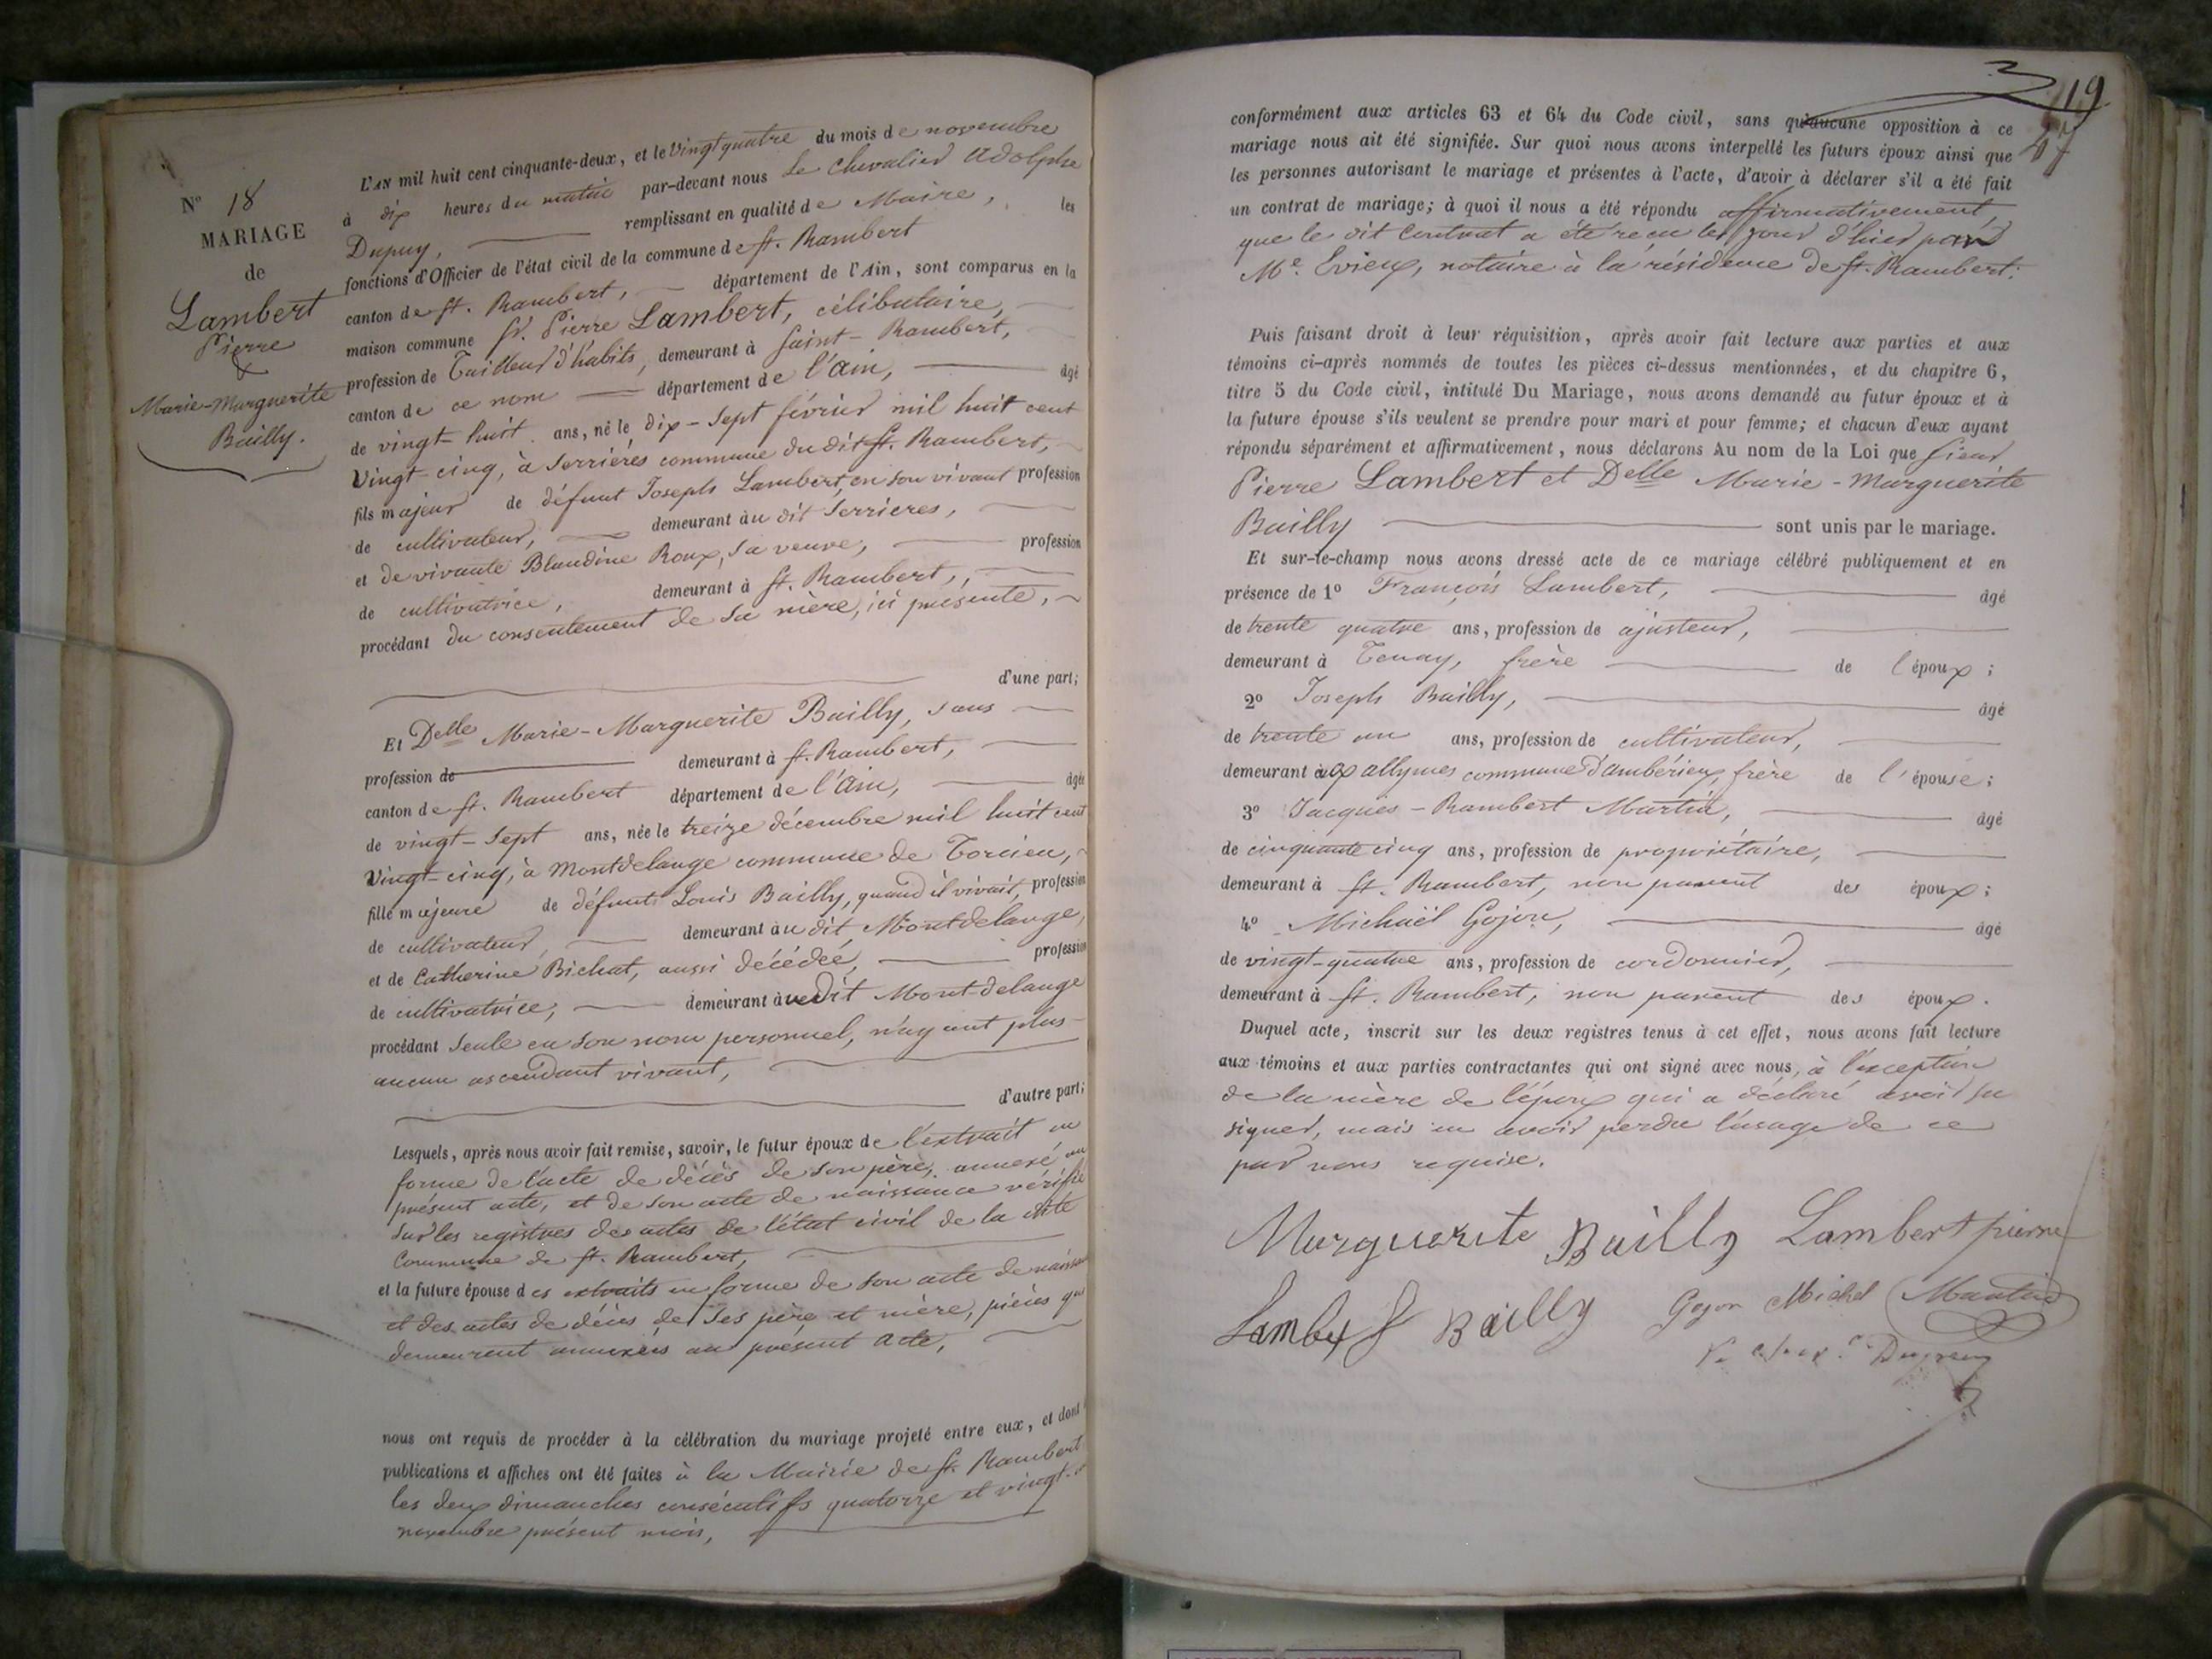 N° 18
MARIAGE
de
Lambert
Pierre
&
Marie-Marguerite
Bailly.
L'AN mil huit cent cinquante-deux, et le Vingt quatre du mois de novembre
à dix heures du matin par-devant nous Le Chevalier Adolphe
Dupuy, remplissant en qualité de Maire, les
fonctions d'Officier de l'état civil de la commune de St. Rambert
canton de St. Rambert, département de l'Ain, sont comparus en la
maison commune Sr. Pierre Lambert, célibataire,
profession de Tailleur d'habits, demeurant à Saint-Rambert,
canton de ce nom département de l'Ain, âgé
de vingt-huit ans, né le dix-sept février mil huit cent
Vingt-cinq, à Serrières commune du dit St. Rambert,
fils majeur de défunt Joseph Lambert, en son vivant profession
de cultivateur, demeurant au dit Serrières,
et de vivante Blandine Roux, sa veuve, profession
de cultivatrice, demeurant à St. Rambert,
procédant du consentement de sa mère, ici présente,
d'une part;
Et Delle Marie-Marguerite Bailly, sans
profession de demeurant à St. Rambert,
canton de St. Rambert département de l'Ain, âgée
de vingt-sept ans, née le treize décembre mil huit cent
Vingt-cinq, à Montdelange commune de Torcieu,
fille majeure de défunt Louis Bailly, quand il vivait, profession
de cultivateur, demeurant au dit Montdelange,
et de Catherine Bichat, aussi décédée, profession
de cultivatrice, demeurant audit Mont-delange
procédant seule en son nom personnel, n'ayant plus
aucun ascendant vivant,
d'autre part;
Lesquels, après nous avoir fait remise, savoir, le futur époux de l'extrait en
forme de l'acte de décès de son père, annexé au
présent acte, et de son acte de naissance vérifié
sur les registres des actes de l'état civil de la dite
Commune de St. Rambert,
et la future épouse des extraits en forme de son acte de naissance
et des actes de décès de ses père et mère, pièces qui
demeurent annexées au présent acte,
nous ont requis de procéder à la célébration du mariage projeté entre eux, et dont
publications et affiches ont été faites à la Mairie de St. Rambert
les deux dimanches consécutifs quatorze et vingt-
novembre présent mois,
19
conformément aux articles 63 et 64 du Code civil, sans qu'aucune opposition à ce
mariage nous ait été signifiée. Sur quoi nous avons interpellé les futurs époux ainsi que
les personnes autorisant le mariage et présentes à l'acte, d'avoir à déclarer s'il a été fait
un contrat de mariage; à quoi il nous a été répondu affirmativement,
que le dit Contrat a été reçu le jour d'hier par
Me. Evieux, notaire à la résidence de St. Rambert.
Puis faisant droit à leur réquisition, après avoir fait lecture aux parties et aux
témoins ci-après nommés de toutes les pièces ci-dessus mentionnées, et du chapitre 6,
titre 5 du Code civil, intitulé Du Mariage, nous avons demandé au futur époux et à
la future épouse s'ils veulent se prendre pour mari et pour femme; et chacun d'eux ayant
répondu séparément et affirmativement, nous déclarons Au nom de la Loi que Sieur
Pierre Lambert et Delle Marie-Marguerite
Bailly sont unis par le mariage.
Et sur-le-champ nous avons dressé acte de ce mariage célébré publiquement et en
présence de 1° François Lambert, âgé
de trente quatre ans, profession de ajusteur,
demeurant à Tenay, frère de l'époux;
2° Joseph Bailly, âgé
de trente un ans, profession de cultivateur,
demeurant aux allymes commune d'ambérieux, frère de l'épouse;
3° Jacques-Rambert Martin, âgé
de cinquante cinq ans, profession de propriétaire,
demeurant à St. Rambert, non parent des époux;
4° Michaël Gojon, âgé
de vingt-quatre ans, profession de cordonnier,
demeurant à St. Rambert, non parent des époux.
Duquel acte, inscrit sur les deux registres tenus à cet effet, nous avons fait lecture
aux témoins et aux parties contractantes qui ont signé avec nous, à l'exception
de la mère de l'époux qui a déclaré avoir su
signer, mais en avoir perdu l'usage de ce
par nous requise.
Marguerite Bailly Lambert pierre
Lambert f Bailly Gojon Michel Martin
Dupuy